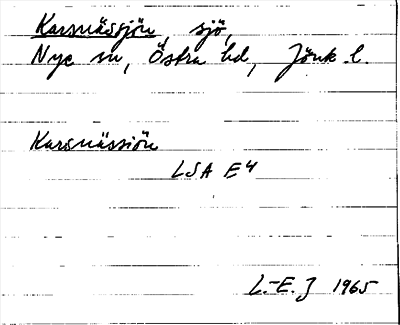 Karsnässjön, sjö,
Nye sn, Östra hd, Jönk. l.
Karsnässiön
LSA E4
L.-E. J 1965